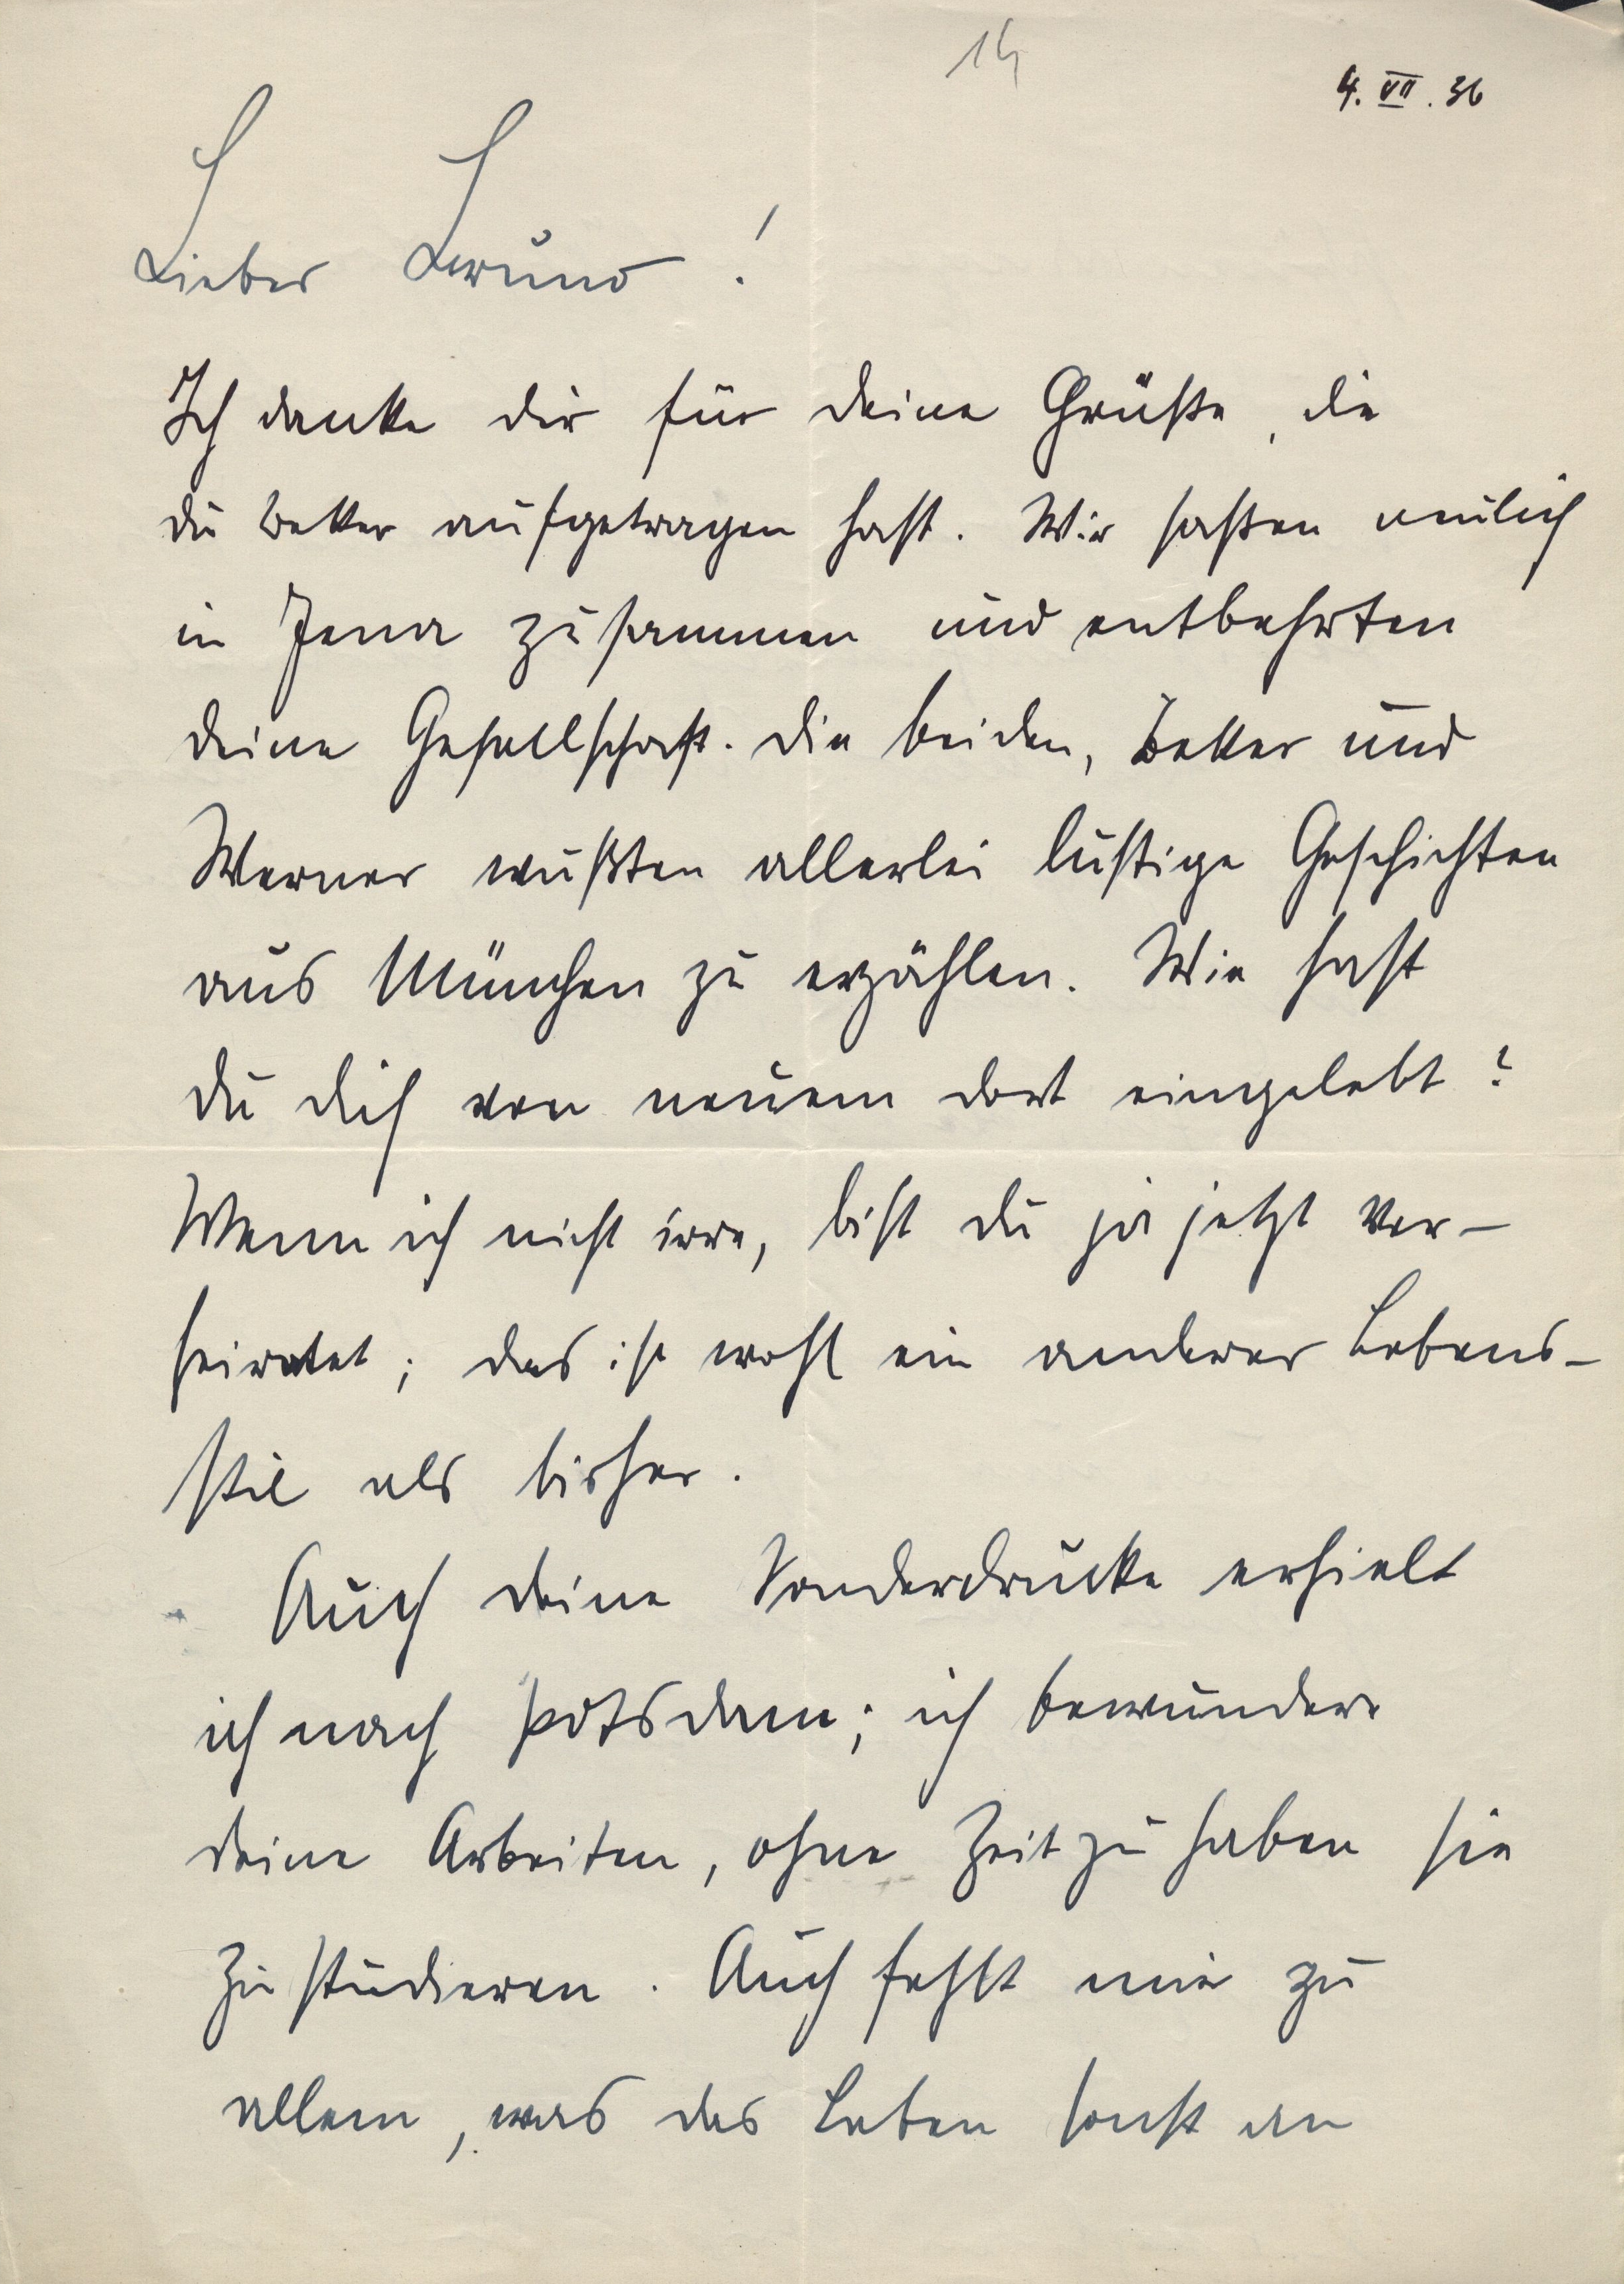 14
4. VII. 36
Lieber Bruno!
Ich danke dir für deine Grüße, die
du Bekker aufgetragen hast. Wir saßen neulich
in Jena zusammen und entbehrten
deine Gesellschaft. Die beiden, Bekker und
Werner wußten allerlei lustige Geschichten
aus München zu erzählen. Wie hast
du dich von neuem dort eingelebt?
Wenn ich nicht irre, bist du ja jetzt ver-
heiratet; das ist wohl ein anderer Lebens-
stil als bisher.
Auch deine Sonderdrucke erhielt
ich nach Potsdam; ich bewundere
deine Arbeiten, ohne Zeit zu haben sie
zu studieren. Auch fehlt mir zu
allem, was das Leben sonst an